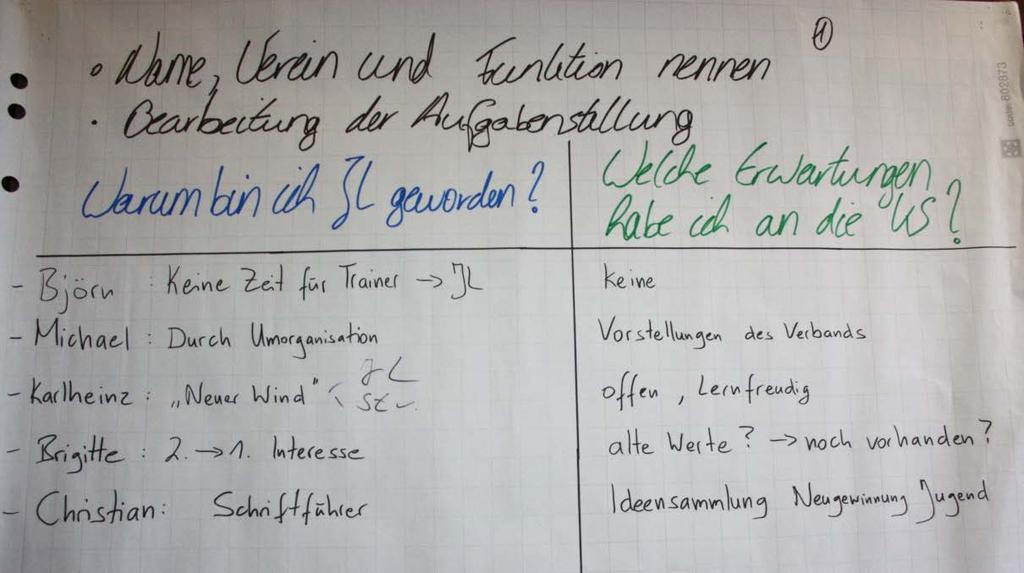 ①
• Name, Verein und Funktion nennen
• Bearbeitung der Aufgabenstellung
Warum bin ich JL geworden?
Welche Erwartungen
habe ich an die US?
- Björn : Keine Zeit für Trainer → JL
keine
- Michael : Durch Umorganisation
Vorstellungen des Verbands
- Karlheinz : „Neuer Wind"
JL
offen, Lernfreudig
- Brigitte : 2. → 1. Interesse
alte Werte? → noch vorhanden?
- Christian: Schriftführer
Ideensammlung Neugewinnung Jugend
802873